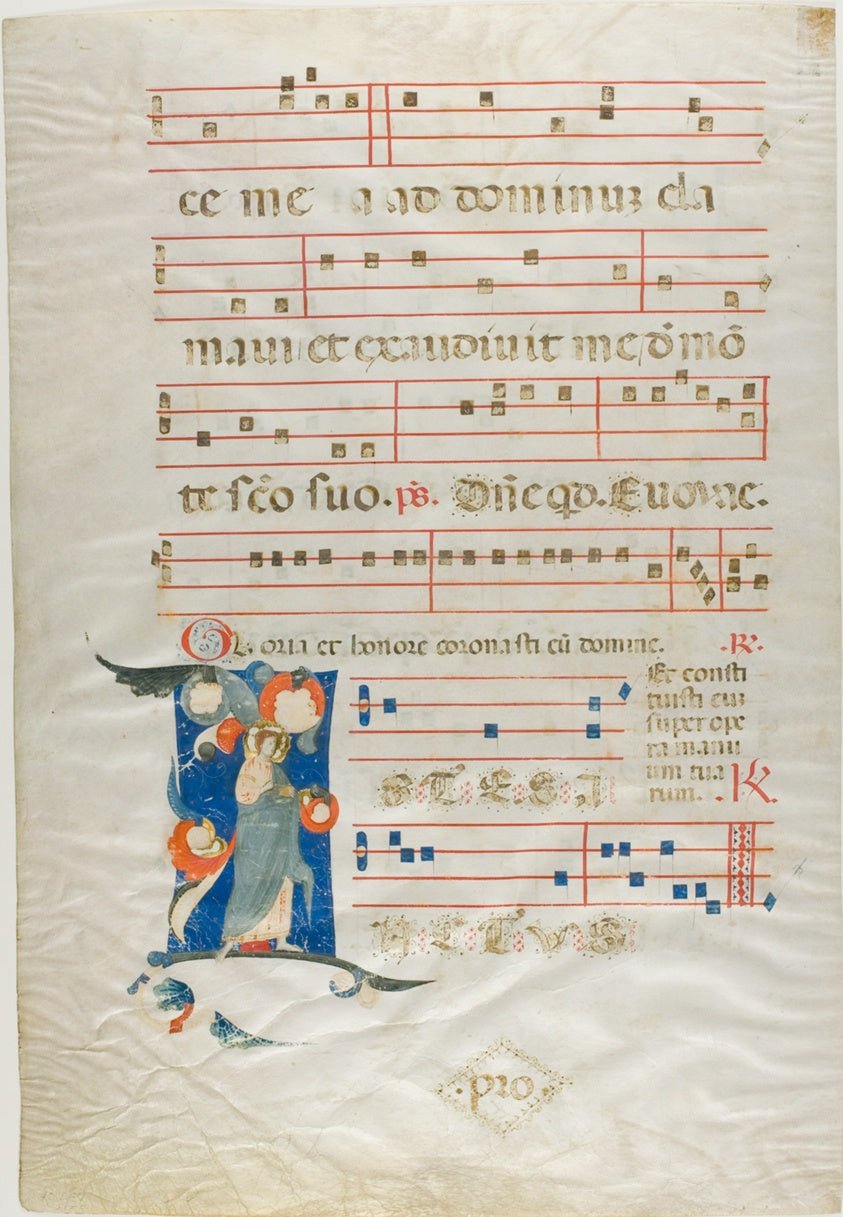 ce me a ad dominuʒ cla
maui et exaudiuit me d̄ mō
te sc̄o suo. ps̄. Dn̄e qd. Euouae.
Gloria et honore coronasti cū domine. .R.
Et consti
tuisti euʒ
super ope
ra manu
um tua
rum. .R.
S T E S A
N C T V S
.pro.